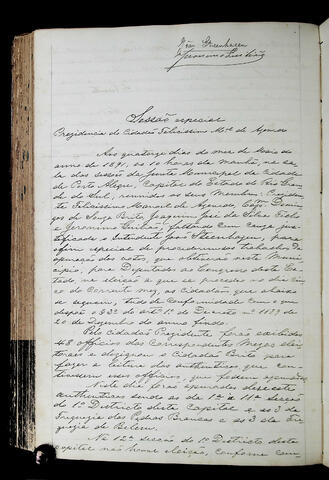 João Steenhagen
Jeronimo Luis Dias
Sessão especial
Presidencia do Cidadão Felicissimo M.el de Azevedo
Aos quatorze dias do mez de Maio do
anno de 1891, as 10 horas da manhã, na sa-
la das sessões da Junta Municipal da cidade
de Porto Alegre, Capital do Estado do Rio Gran-
de do Sul, reunidos os seus Membros: Presiden-
te Felicissimo Manoel de Azevedo, Domin-
gos de Souza Brito, Joaquim José da Silva
e Jeronimo faltando com causa jus-
tificada o Intendente João Steenhagen, para o
fim especial de proceder-se aos trabalhos d'
apuração dos votos, que obtiverão neste Muni-
cipio, para Deputados ao Congresso deste Es-
tado na eleição a que se procedeu no dia cin-
co do corrente mez, os Cidadãos que abaixo
se seguem, tudo de conformidade com o que
dispõe o § 3º do artº 1º do Decreto nº 1189 de
20 de Dezembro do anno findo.
Pelo Cidadão Presidente forão exibidos
48 officios das Correspondentes Mezas elei-
toraes e designou o Cidadão Brito para
fazer a leitura das authenticas que con-
tivessem esses officios, que fossem apurados.
Neste dia forão apuradas dezesete
authenticas sendo as da 1ª a 11ª secção
do 1º Districto desta Capital e as 3 da
Freguezia das Pedras Brancas e as 3 da Fre-
guezia de Belem.
Na 12ª secção do 1º Districto desta
capital não houve eleição, conforme com-